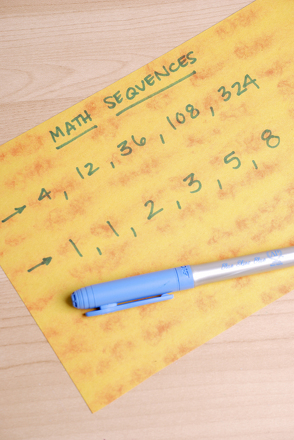 MATH SEQUENCES
→ 4, 12, 36, 108, 324
→ 1, 1, 2, 3, 5, 8